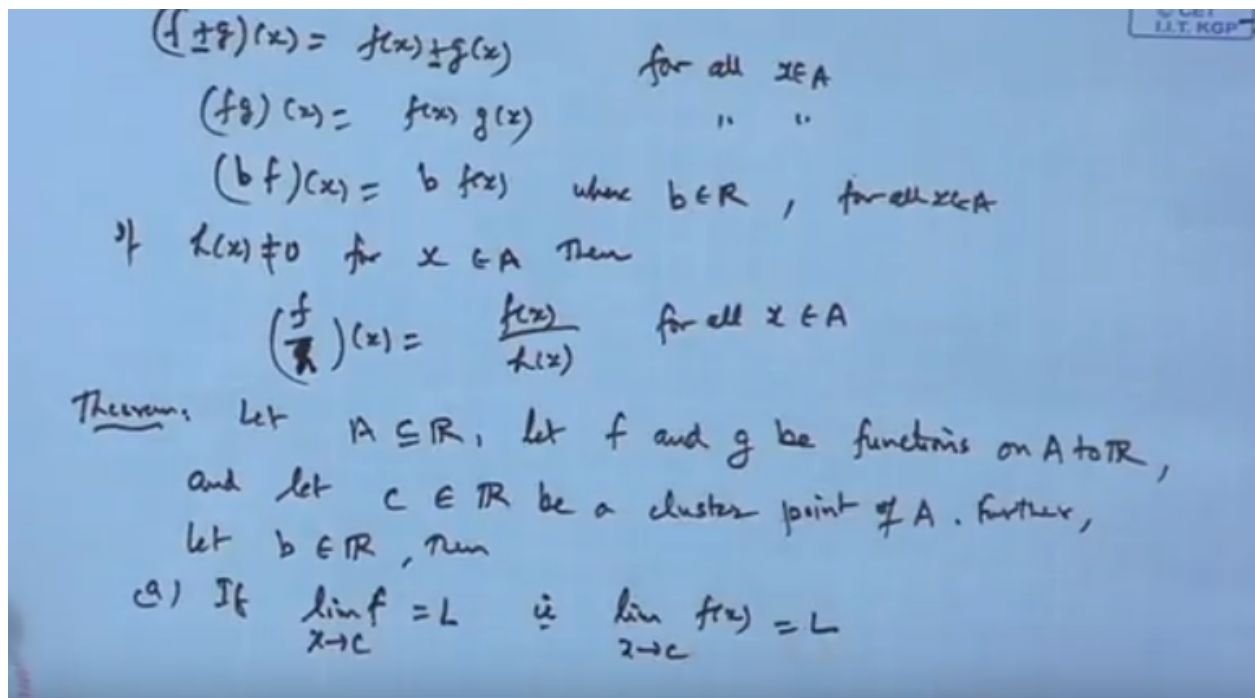 © CET
I.I.T. KGP
(f ± g)(x) = f(x) ± g(x) for all x ∈ A
(fg)(x) = f(x) g(x) " "
(bf)(x) = b f(x) where b ∈ R, for all x ∈ A
If h(x) ≠ 0 for x ∈ A Then
(f/h)(x) = f(x)/h(x) for all x ∈ A
Theorem. Let A ⊆ ℝ, let f and g be functions on A to ℝ,
and let c ∈ ℝ be a cluster point of A. Further,
let b ∈ ℝ, Then
(a) If lim f = L ie lim f(x) = L
x→c x→c